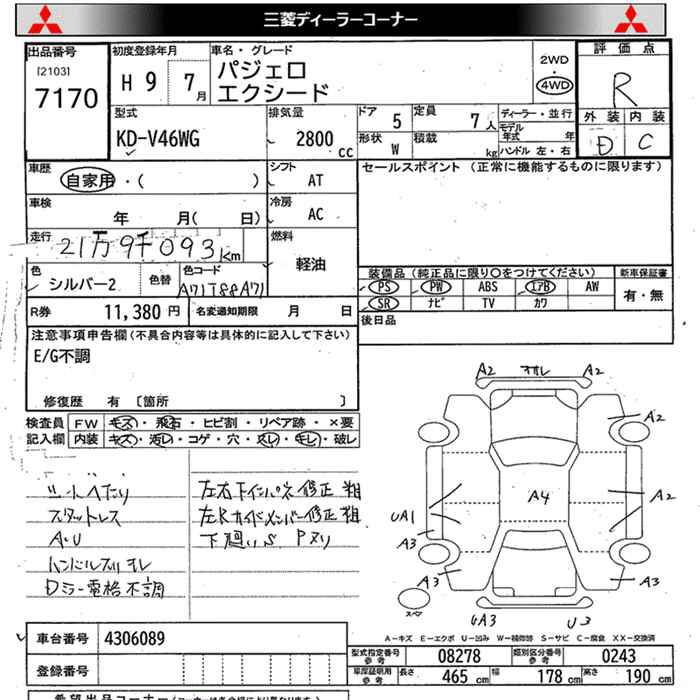 三菱ディーラーコーナー
出品番号
[2103]
7170
初度登録年月
H 9 7月
車名・グレード
パジェロ
エクシード
2WD
・
4WD
評価点
R
外装 内装
D C
型式
KD-V46WG
排気量
2800 cc
ドア 5
定員 7人
形状 W
積載 kg
ディーラー・並行
モデル年式 年
ハンドル 左・右
車歴
自家用・( )
シフト AT
車検
年 月( 日)
冷房 AC
走行
21万9千093Km
燃料
軽油
色
シルバー2
色替
色コード
R券 11,380 円
名変通知期限 月 日
セールスポイント (正常に機能するものに限ります)
装備品 (純正品に限り○をつけてください)
新車保証書
PS PW ABS エアB AW
SR ナビ TV カワ
有・無
後日品
注意事項申告欄(不具合内容等は具体的に記入して下さい)
E/G不調
修復歴 有 〔箇所 〕
検査員
記入欄
FW キズ・飛石・ヒビ割・リペア跡・×要
内装 キズ・汚レ・コゲ・穴・スレ・キレ・破レ
スタットレス
ハンドルスリキレ
Dミラー電格不調
修正粗
修正粗
A2 A2
A2
A4
A2
UA1
A3
A3
A3
スペア
A－キズ E－エクボ U－凹み W－補修跡 S－サビ C－腐食 XX－交換済
車台番号 4306089
登録番号
型式指定番号 参考 08278
類別区分番号 参考 0243
車庫証明寸法 参考 長さ 465 cm 幅 178 cm 高さ 190 cm
希望出品コーナー